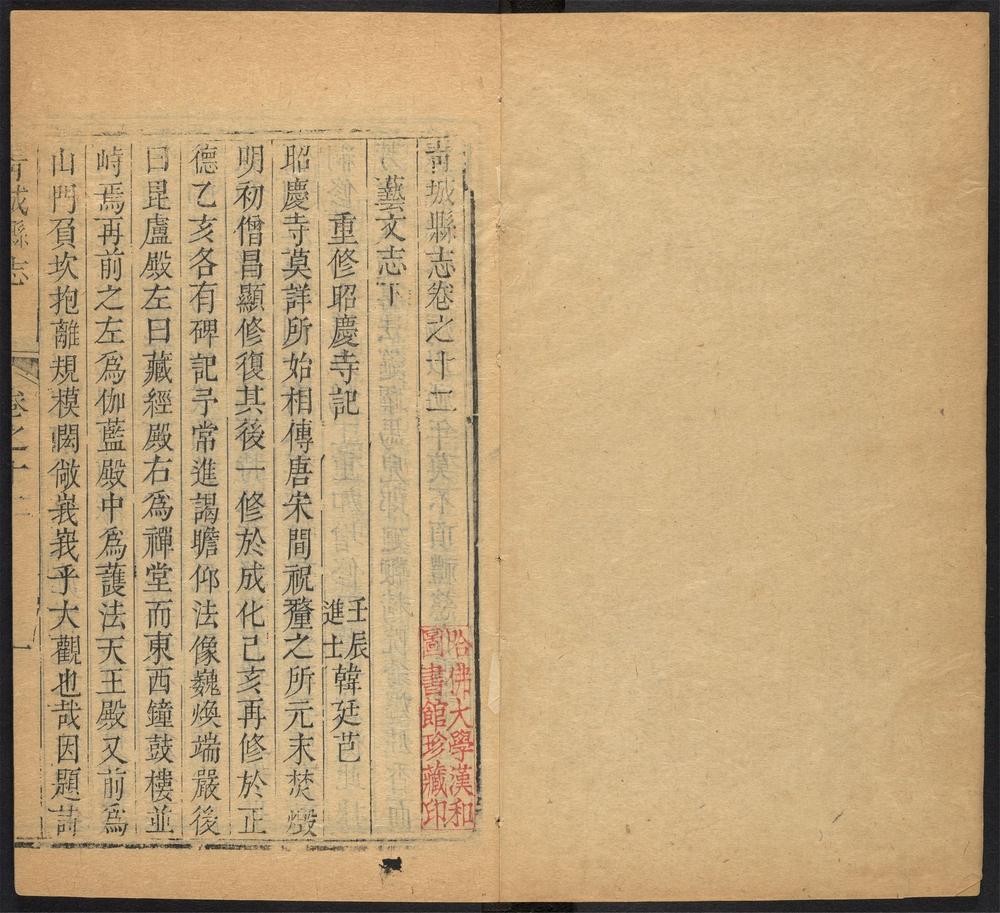 青城縣志卷之十二
藝文志下
重修昭慶寺記
壬辰進士韓廷芑
昭慶寺莫詳所始相傳唐宋間祝釐之所元末焚燬
明初僧昌顯修復其後一修於成化己亥再修於正
德乙亥各有碑記予常進謁瞻仰法像巍煥端嚴後
曰毘盧殿左曰藏經殿右為禪堂而東西鐘鼓樓並
峙焉再前之左為伽藍殿中為護法天王殿又前為
山門負坎抱離規模闊敞峩峩乎大觀也哉因題詩
青城縣志
卷之十二
一
哈佛大學漢和
圖書館珍藏印